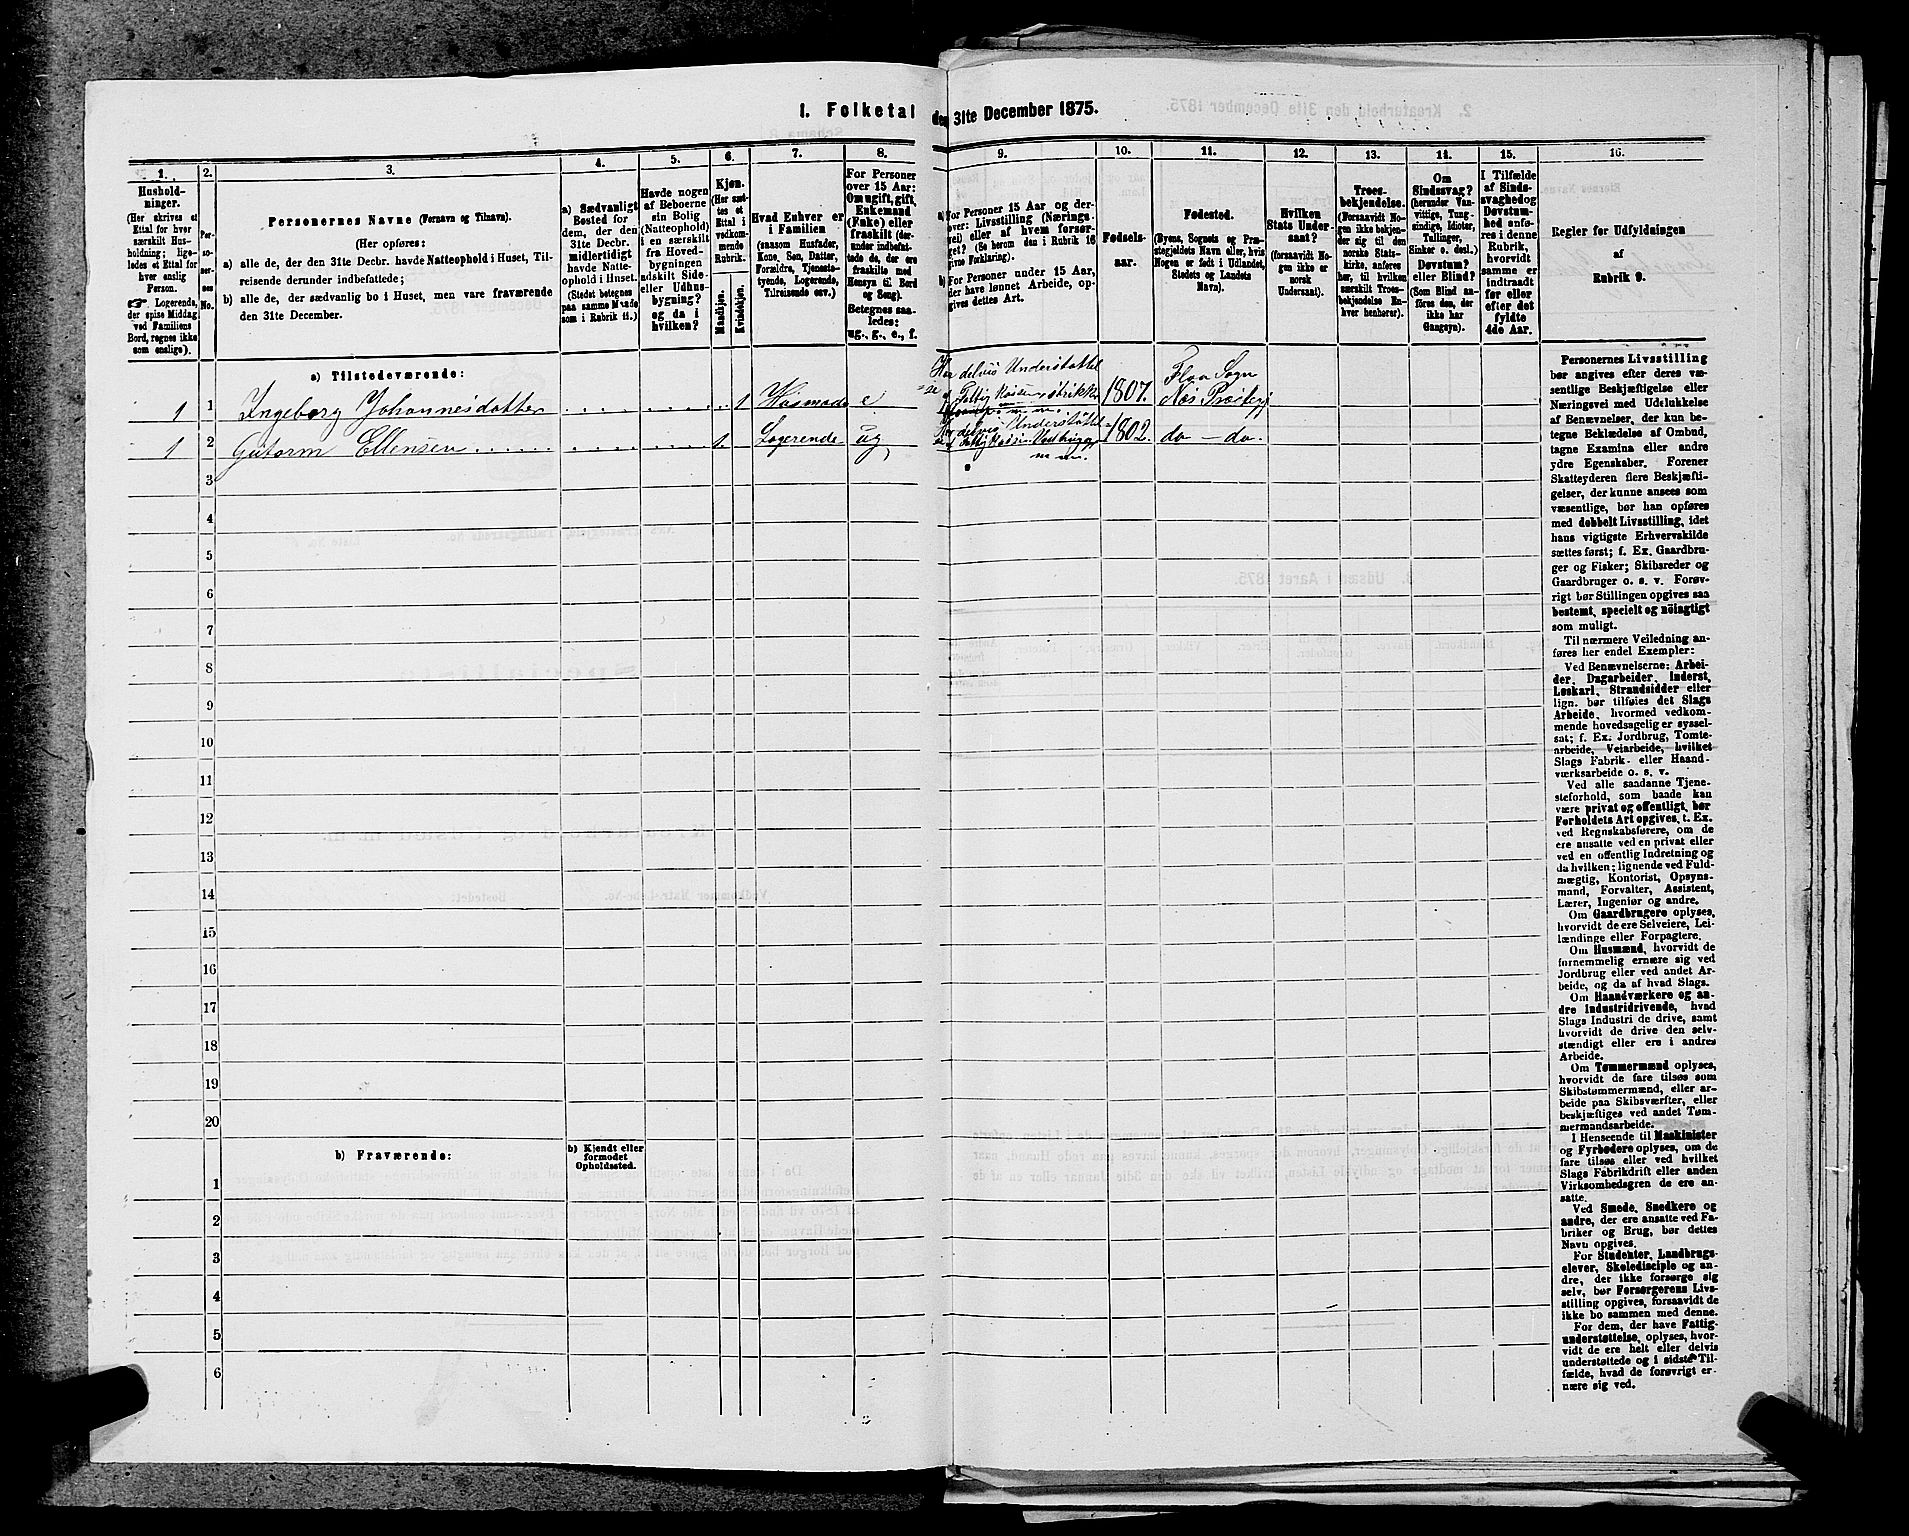 1. Folketal den 31te December 1875.
1.
Hushold-
ninger.
(Her skrives et
Ettal for hver
særskilt Hus-
holdning; lige-
ledes et Ettal for
hver enslig
Person.
☞ Logerende,
der spise Middag
ved Familiens
Bord, regnes ikke
som enslige).
2.
Per-
so-
ner-
nes
No.
3.
Personernes Navne (Fornavn og Tilnavn).
(Her opføres:
a) alle de, der den 31te Decbr. havde Natteophold i Huset, Til-
reisende derunder indbefattede;
b) alle de, der sædvanlig bo i Huset, men vare fraværende
den 31te December.
4.
a) Sædvanligt
Bosted for
dem, der den
31te Decbr.
midlertidigt
havde Natte-
ophold i Huset.
(Stedet betegnes
paa samme Maade
som i Rubrik 11.)
5.
Havde nogen
af Beboerne
sin Bolig
(Natteophold)
i en særskilt
fra Hoved-
bygningen
udskilt Side-
eller Udhus-
bygning?
og da i
hvilken?
6.
Kjøn.
(Her sæt-
tes et
Ettal i
vedkom-
mende
Rubrik.
Mandkjøn.
Kvindekjøn.
7.
Hvad Enhver er
i Familien
(saasom Husfader,
Kone, Søn, Datter,
Forældre, Tjeneste-
tyende, Logerende,
Tilreisende osv.)
8.
For Personer
over 15 Aar:
Om ugift, gift,
Enkemand
(Enke) eller
fraskilt
(der-
under indbefat-
tede de, der ere
fraskilte med
Hensyn til Bord
og Seng).
Betegnes saa-
ledes:
ug., g., e., f.
9.
a) For Personer 15 Aar og der-
over: Livsstilling (Nærings-
vei) eller af hvem forsør-
get? (Se herom den i Rubrik 16
givne Forklaring).
b) For Personer under 15 Aar,
der have lønnet Arbeide, op-
gives dettes Art.
10.
Fødsels-
aar.
11.
Fødested.
(Byens, Sognets og Præ-
stegjeldets Navn eller, hvis
Nogen er født i Udlandet,
Stedets og Landets
Navn).
12.
Hvilken
Stats Under-
saat?
(forsaavidt No-
gen ikke er
norsk
Undersaat).
13.
Troes-
bekjendelse.
(Forsaavidt No-
gen ikke bekjen-
der sig til den
norske Stats-
kirke, anføres
her, til hvilken
særskilt Troes-
bekjendelse En-
hver henhører).
14.
Om
Sindssvag?
(herunder Van-
vittige, Tung-
sindige, Idioter,
Tullinger,
Sinker o. desl.)
Døvstum?
eller Blind?
(Som Blind an-
føres den, der
ikke har
Gangsyn).
15.
I Tilfælde
af Sinds-
svaghed og
Døvstum-
hed anfø-
res i denne
Rubrik,
hvorvidt
samme er
indtraadt
før eller
efter det
fyldte
4de Aar.
16.
Regler for Udfyldningen
af
Rubrik 9.
a) Tilstedeværende:
1 1 Ingeborg Johannesdatter 1 Husmoder e 1807. Flaa Sogn
Næs Præstegj
1 2 Gutorm Ellensen 1. Logerende ug 1802. do - do.
3
4
5
6
7
8
9
10
11
12
13
14
15
16
17
18
19
20
b) Fraværende:
b) Kjendt eller
formodet
Opholdssted.
1
2
3
4
5
6
Personernes Livsstilling
bør angives efter deres væ-
sentlige Beskjæftigelse eller
Næringsvei med Udelukkelse
af Benævnelser, der kun be-
tegne Beklædelse af Ombud,
tagne Examina eller andre
ydre Egenskaber. Forener
Skatteyderen flere Beskjæfti-
gelser, der kunne ansees som
væsentlige, bør han opføres
med dobbelt Livsstilling, idet
hans vigtigste Erhvervskilde
sættes først; f. Ex. Gaardbru-
ger og Fisker; Skibsreder og
Gaardbruger o. s. v. Forøv-
rigt bør Stillingen opgives saa
bestemt, specielt og nøiagtigt
som muligt.
Til nærmere Veiledning an-
føres her endel Exempler:
Ved Benævnelserne: Arbei-
der, Dagarbeider, Inderst,
Løskarl, Strandsidder eller
lign. bør tilføies det Slags
Arbeide, hvormed vedkom-
mende hovedsagelig er syssel-
sat; f. Ex. Jordbrug, Tomte-
arbeide, Veiarbeide, hvilket
Slags Fabrik- eller Haand-
værksarbeide o. s. v.
Ved alle saadanne Tjene-
steforhold, som baade kan
være privat og offentligt, bør
Forholdets Art opgives, t. Ex.
ved Regnskabsførere, om de
ere ansatte ved en privat eller
ved en offentlig Indretning og
da hvilken; lignende ved Fuld-
mægtig, Kontorist, Opsyns-
mand, Forvalter, Assistent,
Lærer, Ingeniør og andre.
Om Gaardbrugere oplyses,
hvorvidt de ere Selveiere, Lei-
lændinge eller Forpagtere.
Om Husmænd, hvorvidt de
fornemmelig ernære sig ved
Jordbrug eller ved andet Ar-
beide, og da af hvad Slags.
Om Haandværkere og an-
dre industridrivende, hvad
Slags Industri de drive, samt
hvorvidt de drive den selv-
stændigt eller ere i andres
Arbeide.
Om Tømmermænd oplyses,
hvorvidt de fare tilsøs som
Skibstømmermænd, eller ar-
beide paa Skibsværfter, eller
beskjæftiges ved andet Tøm-
mermandsarbeide.
I Henseende til Maskinister
og Fyrbødere oplyses, om de
fare tilsøs eller ved hvilket
Slags Fabrikdrift eller anden
Virksomhedsgren de ere an-
satte.
Ved Smede, Snedkere og
andre, der ere ansatte ved Fa-
briker og Brug, bør dettes
Navn opgives.
For Studenter, Landbrugs-
elever, Skoledisciple og an-
dre, der ikke forsørge sig
selv, bør Forsørgerens Livs-
stilling opgives, forsaavidt de
ikke bo sammen med denne.
For dem, der have Fattig-
understøttelse, oplyses, hvor-
vidt de ere helt eller delvis
understøttede og i sidste Til-
fælde, hvad de forøvrigt er-
nære sig ved.